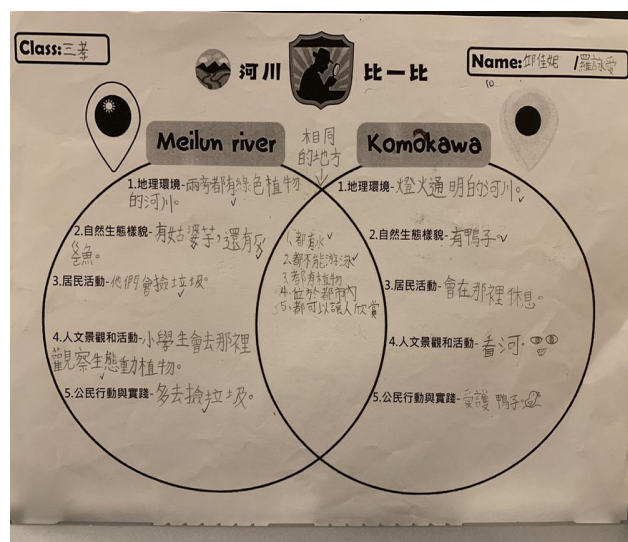 Class:三孝
Name:邱佳妮/羅詠愛
10
河川 比一比
Meilun river
Komokawa
相同
的地方
1.地理環境-兩旁都有綠色植物
的河川。
2.自然生態樣貌-有姑婆芋,還有
魚。
3.居民活動-他們會撿垃圾。
4.人文景觀和活動-小學生會去那裡
觀察生態動植物。
5.公民行動與實踐-多去撿垃圾。
1.都有水
2.都不能游泳
3.都有植物
4.位於都市內
5.都可以讓人欣賞
1.地理環境-燈火通明的河川。
2.自然生態樣貌-有鴨子。
3.居民活動-會在那裡休息。
4.人文景觀和活動-看河。
5.公民行動與實踐-愛護鴨子。